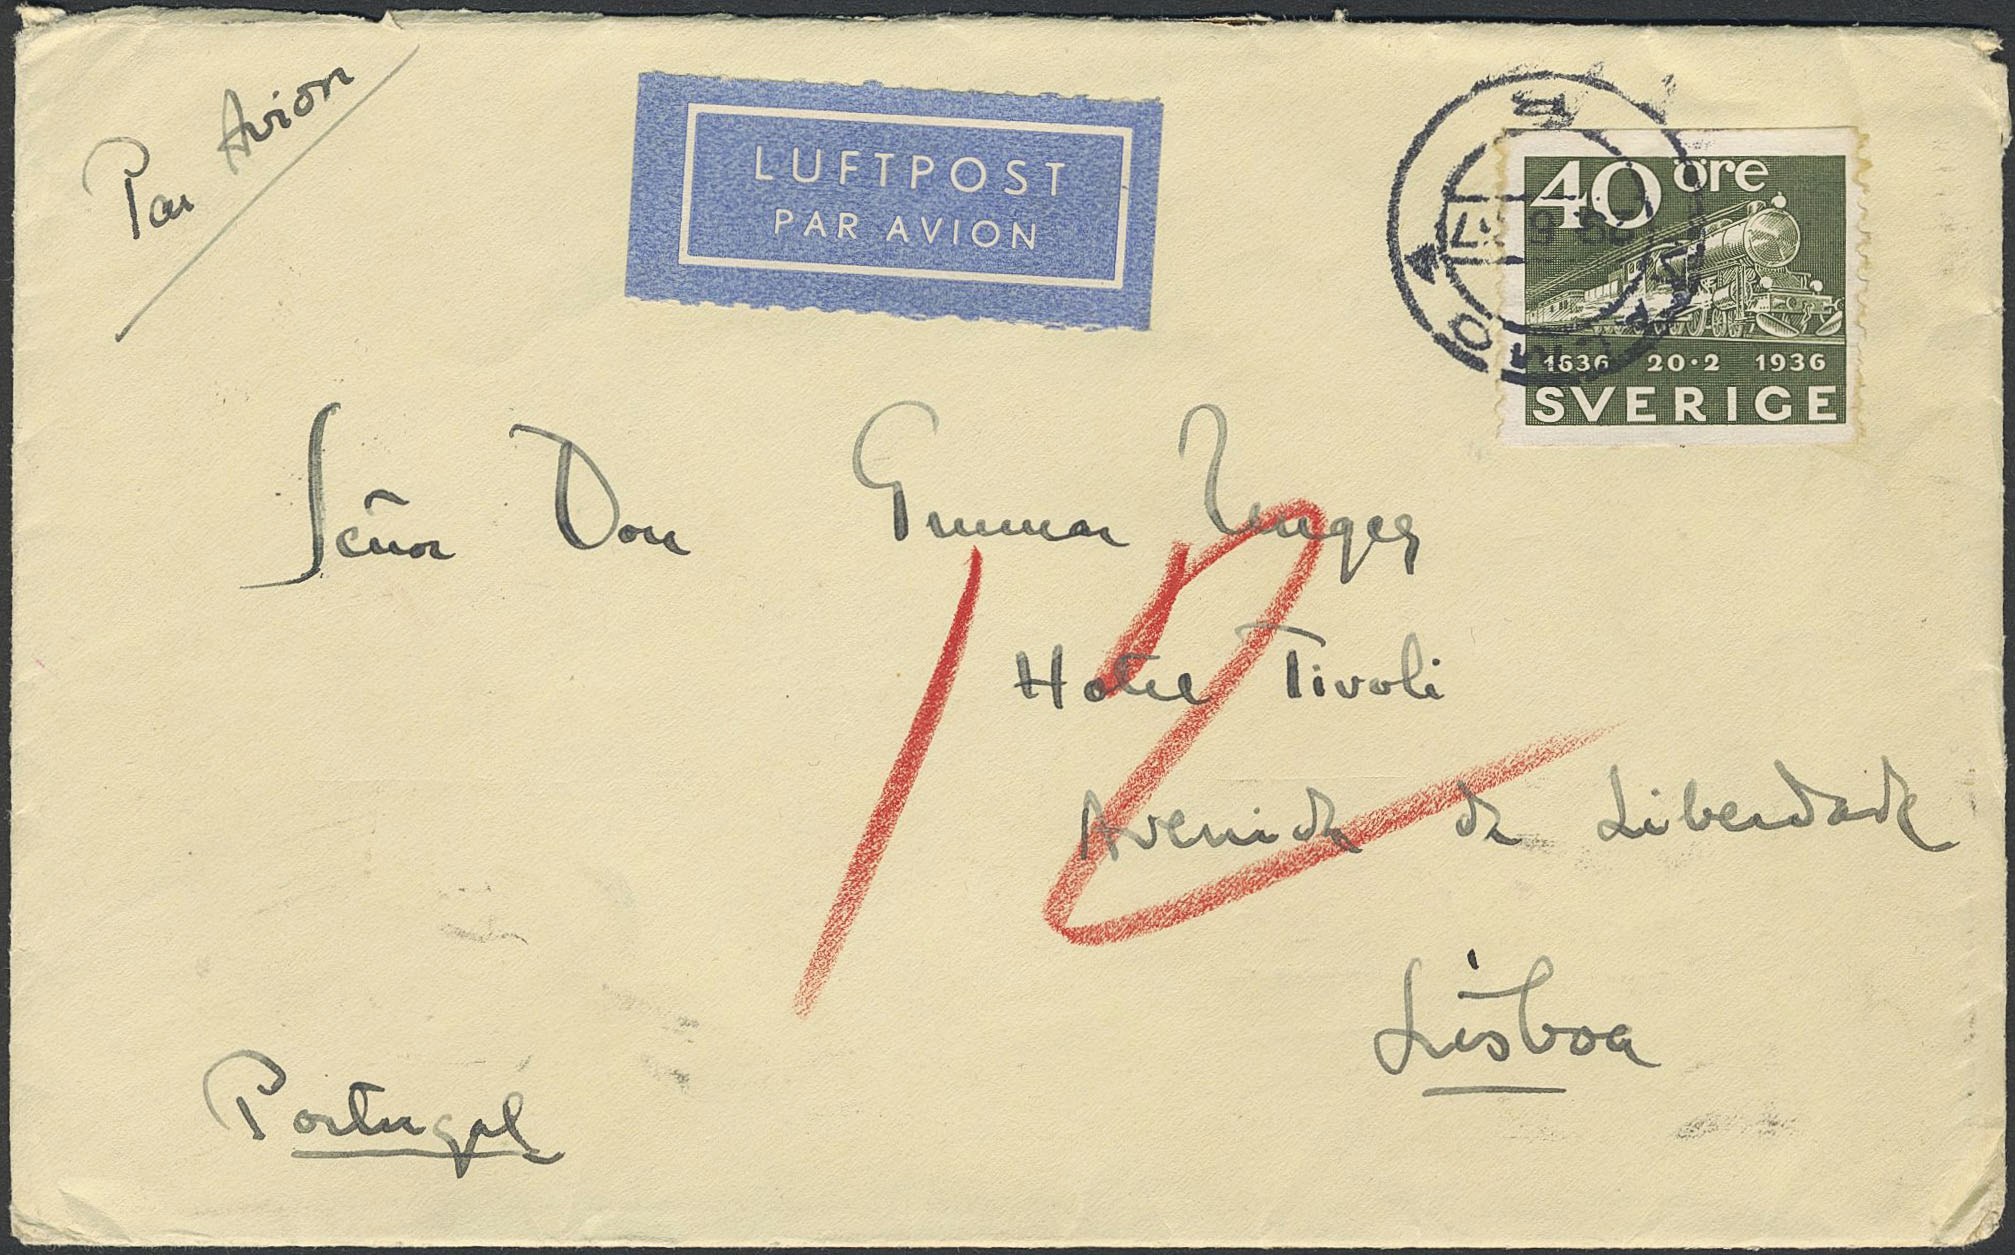 Par Avion
LUFTPOST
PAR AVION
40 öre
1636 20·2 1936
SVERIGE
Señor Don Gunnar
Hotel Tivoli
12
Avenida da Liberdade
Lisboa
Portugal